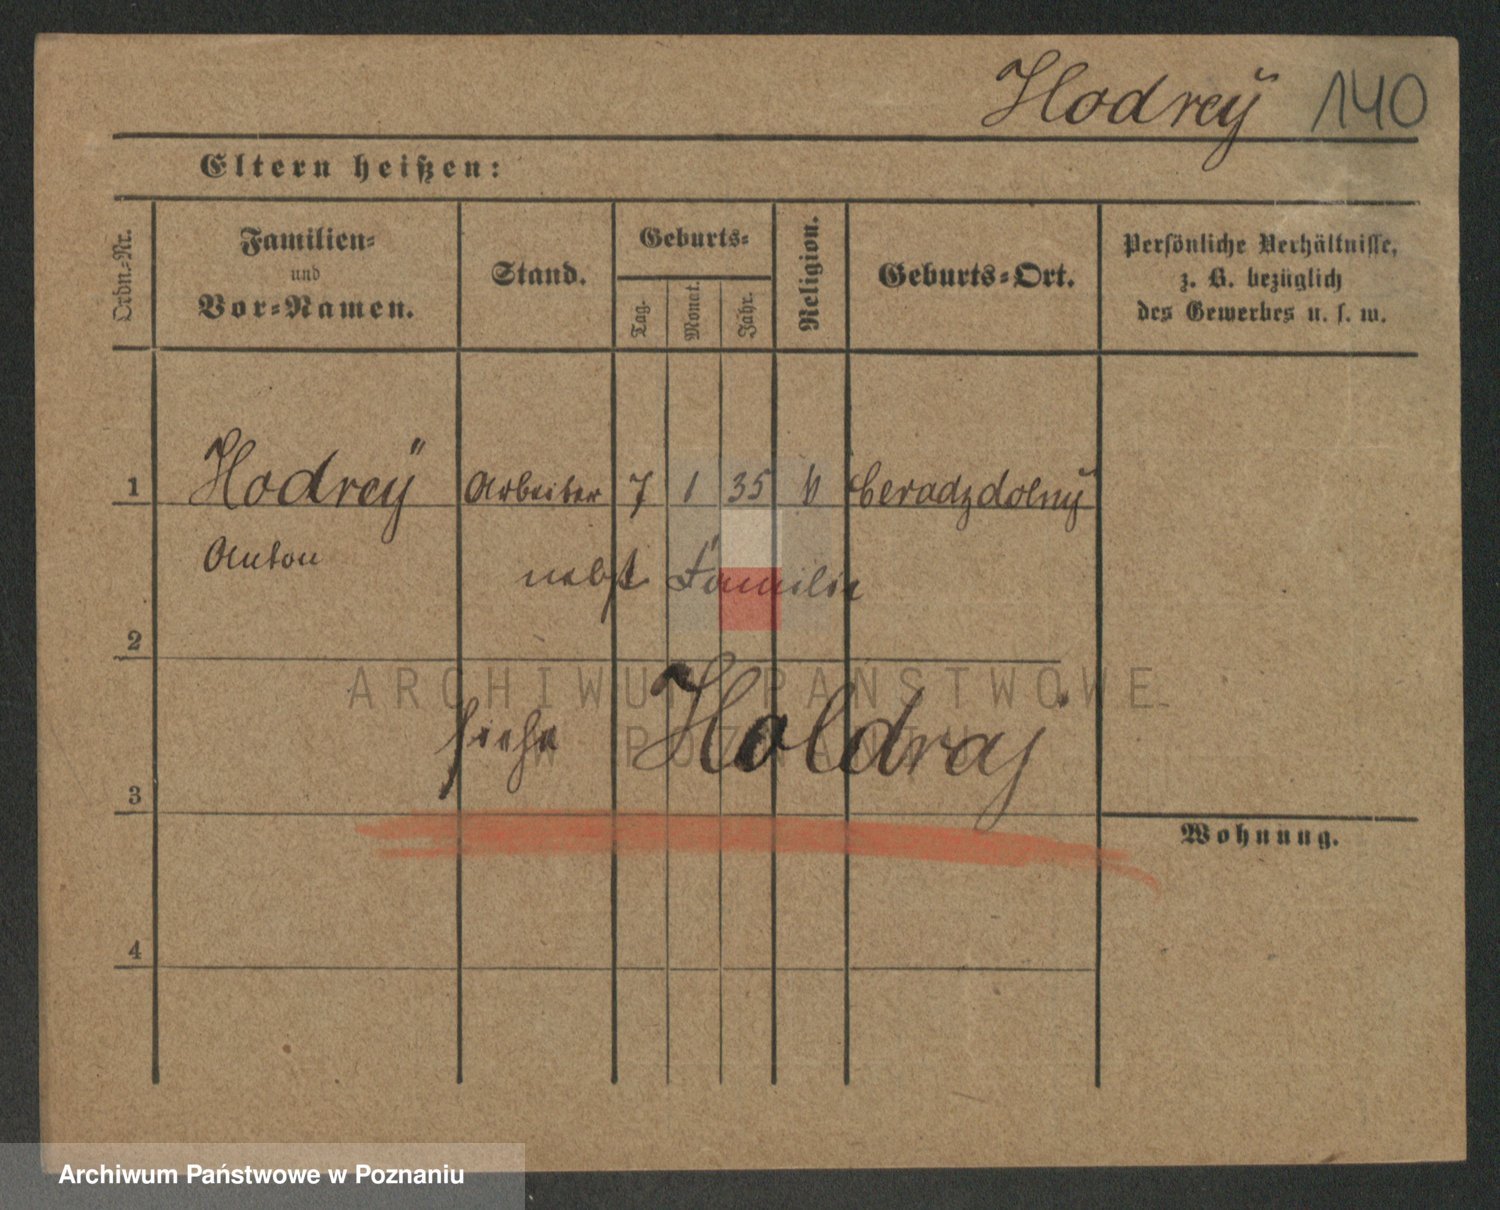 Hodreÿ 140
Eltern heißen:
Ordn.-Nr.
Familien-
und
Vor-Namen.
Stand.
Geburts-
Tag.
Monat.
Jahr.
Religion.
Geburts-Ort.
Persönliche Verhältnisse,
z. B. bezüglich
des Gewerbes u. s. w.
1 Hodreÿ Arbeiter 7 1 35 Ceradzdolny
Anton
nebst Familie
2
siehe Holdraj
3
Wohnung.
4
ARCHIWUM PAŃSTWOWE
W POZNANIU
Archiwum Państwowe w Poznaniu